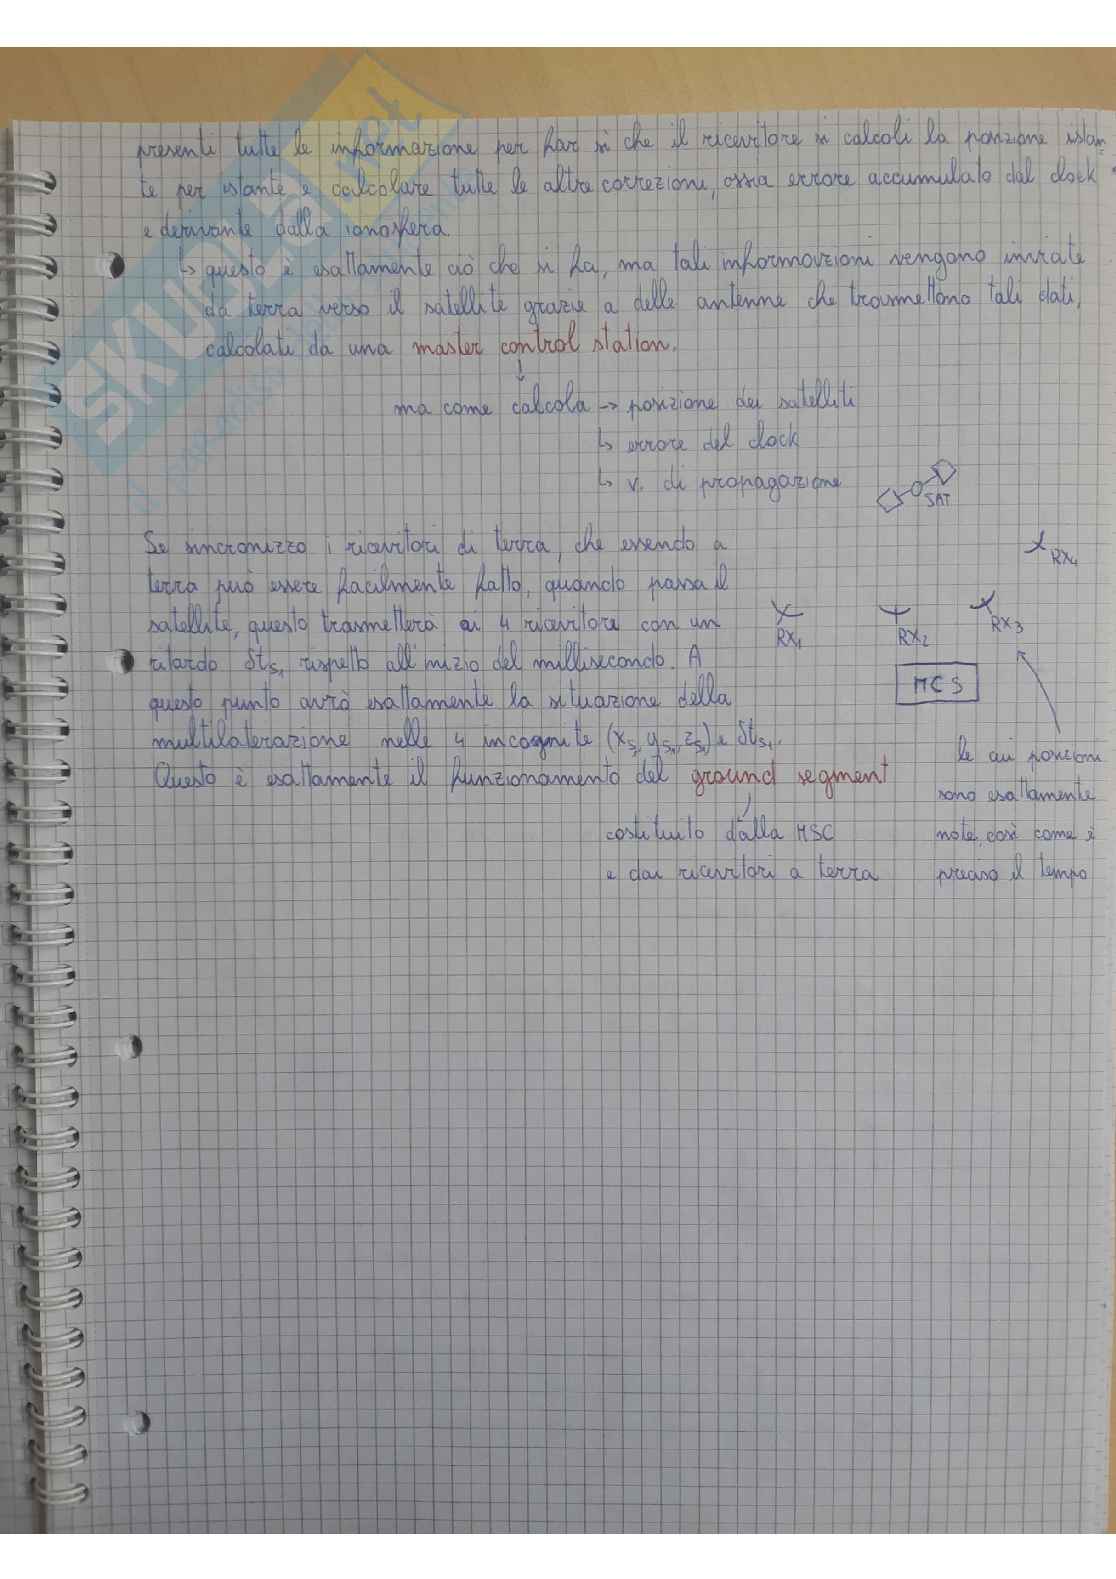 presenti tutte le informazione per far sì che il ricevitore si calcoli la posizione istan-
te per istante e calcolare tutte le altre correzioni, ossia errore accumulato dal clock
e derivante dalla ionosfera.
↳ questo è esattamente ciò che si fa, ma tali informazioni vengono inviate
da terra verso il satellite grazie a delle antenne che trasmettono tali dati,
calcolati da una master control station.
↓
ma come calcola → posizione dei satelliti
↳ errore del clock
↳ v. di propagazione
SAT
Se sincronizzo i ricevitori di terra, che essendo a
terra può essere facilmente fatto, quando passa il
satellite, questo trasmetterà ai 4 ricevitore con un
ritardo δts₁ rispetto all'inizio del millisecondo. A
questo punto avrò esattamente la situazione della
multilaterazione nelle 4 incognite (xs₁, ys₁, zs₁) e δts₁.
Questo è esattamente il funzionamento del ground segment
costituito dalla MSC
e dai ricevitori a terra
RX₄
RX₁ RX₂ RX₃
MCS
le cui posizioni
sono esattamente
note, così come è
preciso il tempo
SKUOLA.net